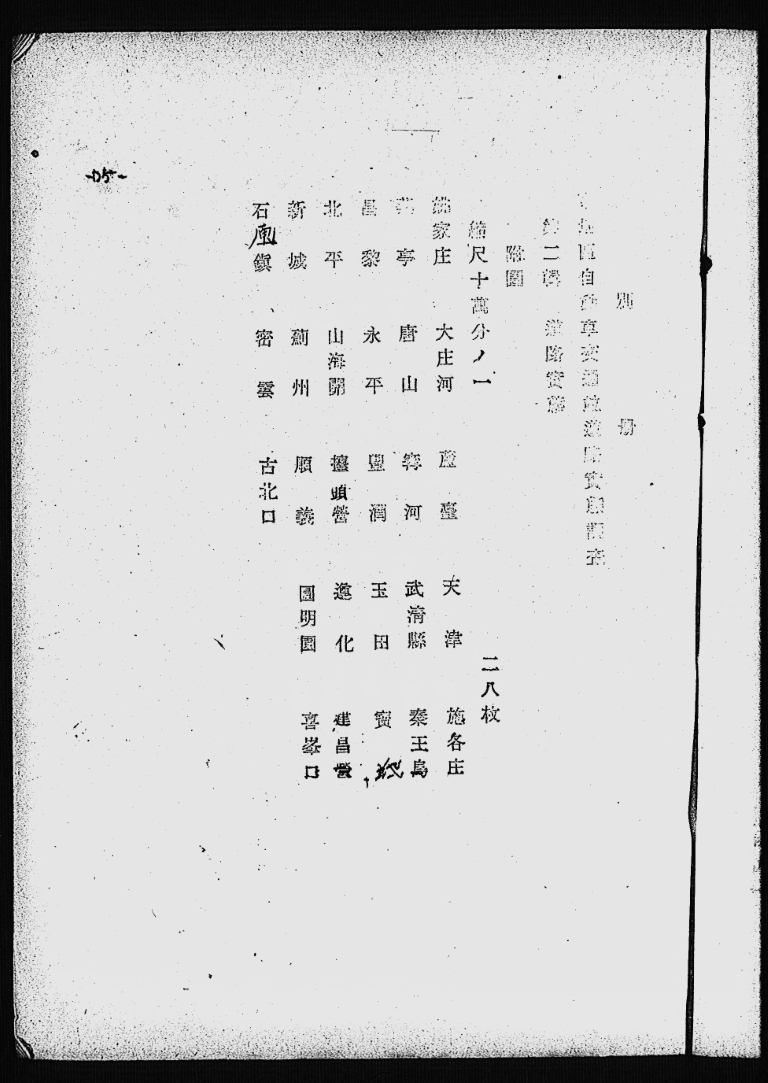 別 册
區自動車交通並道路實態調査
第二輯 道路實態
附圖
縮尺十萬分ノ一 二八枚
姚家庄 大庄河 蘆臺 天津 施各庄
亭 唐山 河 武清縣 秦王島
昌黎 永平 豐潤 玉田 寶
北平 山海關 擡頭營 遵化 建昌營
新城 薊州 順義 圓明園 喜峯口
石匣鎭 密雲 古北口